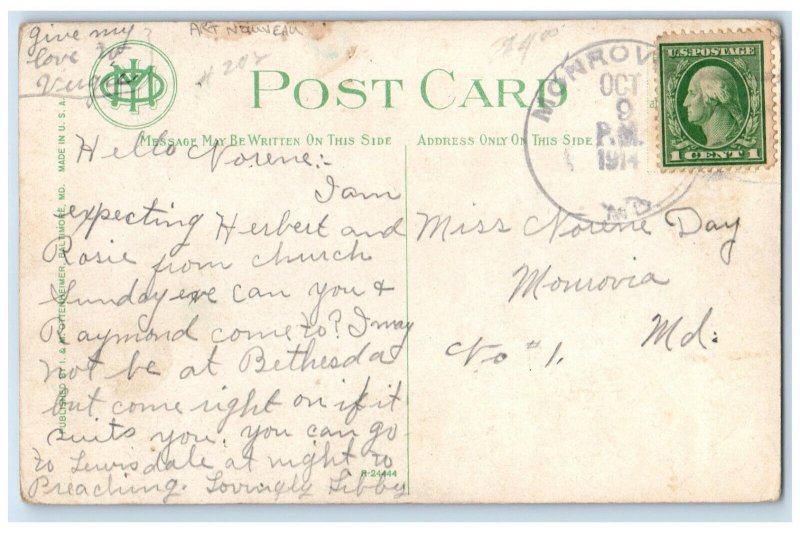 give my
love to
ART NOUVEAU
# 202
POST CARD
MESSAGE MAY BE WRITTEN ON THIS SIDE
ADDRESS ONLY ON THIS SIDE
Hello Norene:-
I am
expecting Herbert and
Rosie from church
Sunday eve can you &
Raymond come to? I may
not be at Bethesda
but come right on if it
suits you. you can go
to Lewisdale at night to
Preaching. Lovingly Libby
MONROVIA
OCT
9
P.M.
1914
MD.
U.S. POSTAGE
1 CENT 1
Miss Norene Day
Monrovia
No #1.
Md.
PUBLISHED BY I. & M. OTTENHEIMER, BALTIMORE, MD.
MADE IN U. S. A.
R-24444